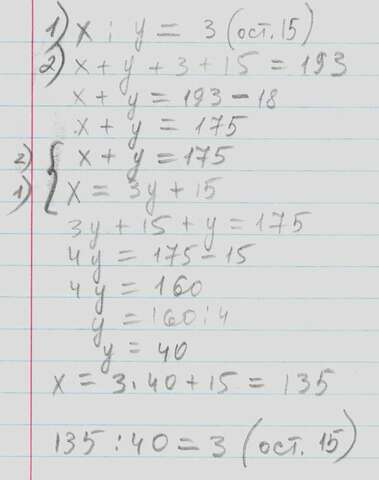 1) x : y = 3 (ост. 15)
2) x + y + 3 + 15 = 193
x + y = 193 - 18
x + y = 175
2) { x + y = 175
1) { x = 3y + 15
3y + 15 + y = 175
4y = 175 - 15
4y = 160
y = 160 : 4
y = 40
x = 3 . 40 + 15 = 135
135 : 40 = 3 (ост. 15)